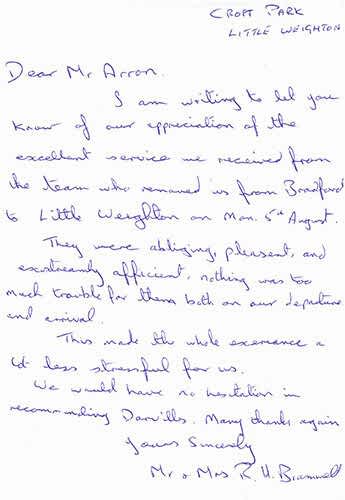 CROFT PARK
LITTLE WEIGHTON
Dear Mr Arron.
I am writing to let you
know of our appreciation of the
excellent service we received from
the team who removed us from Bradford
to Little Weighton on Mon. 5th August.
They were obliging, pleasent, and
exstreamly efficient, nothing was too
much trouble for them both on our departure
and arrival.
This made the whole experance a
lot less stressful for us.
We would have no hesitation in
recommending Danvills. Many thanks again
Yours Sincerely
Mr & Mrs R. H. Bramwell